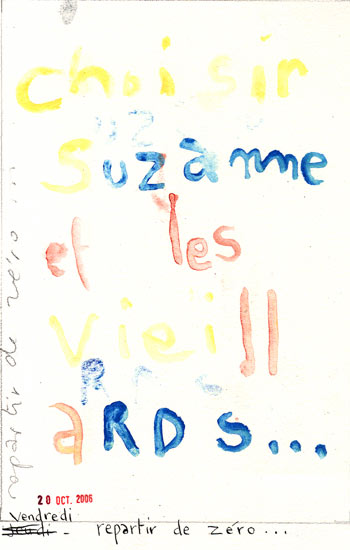 choisir
suzanne
et les
vieill
aRDS...
repartir de zéro...
20 OCT. 2006
Vendredi
Jeudi - repartir de zéro...